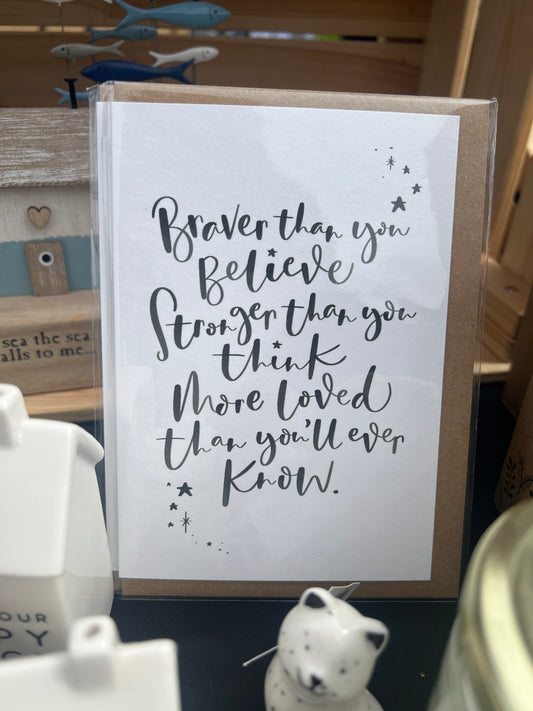 Braver than you
Believe
Stronger than you
think
More loved
than you'll ever
Know.
sea the sea
alls to me...
OUR
PY